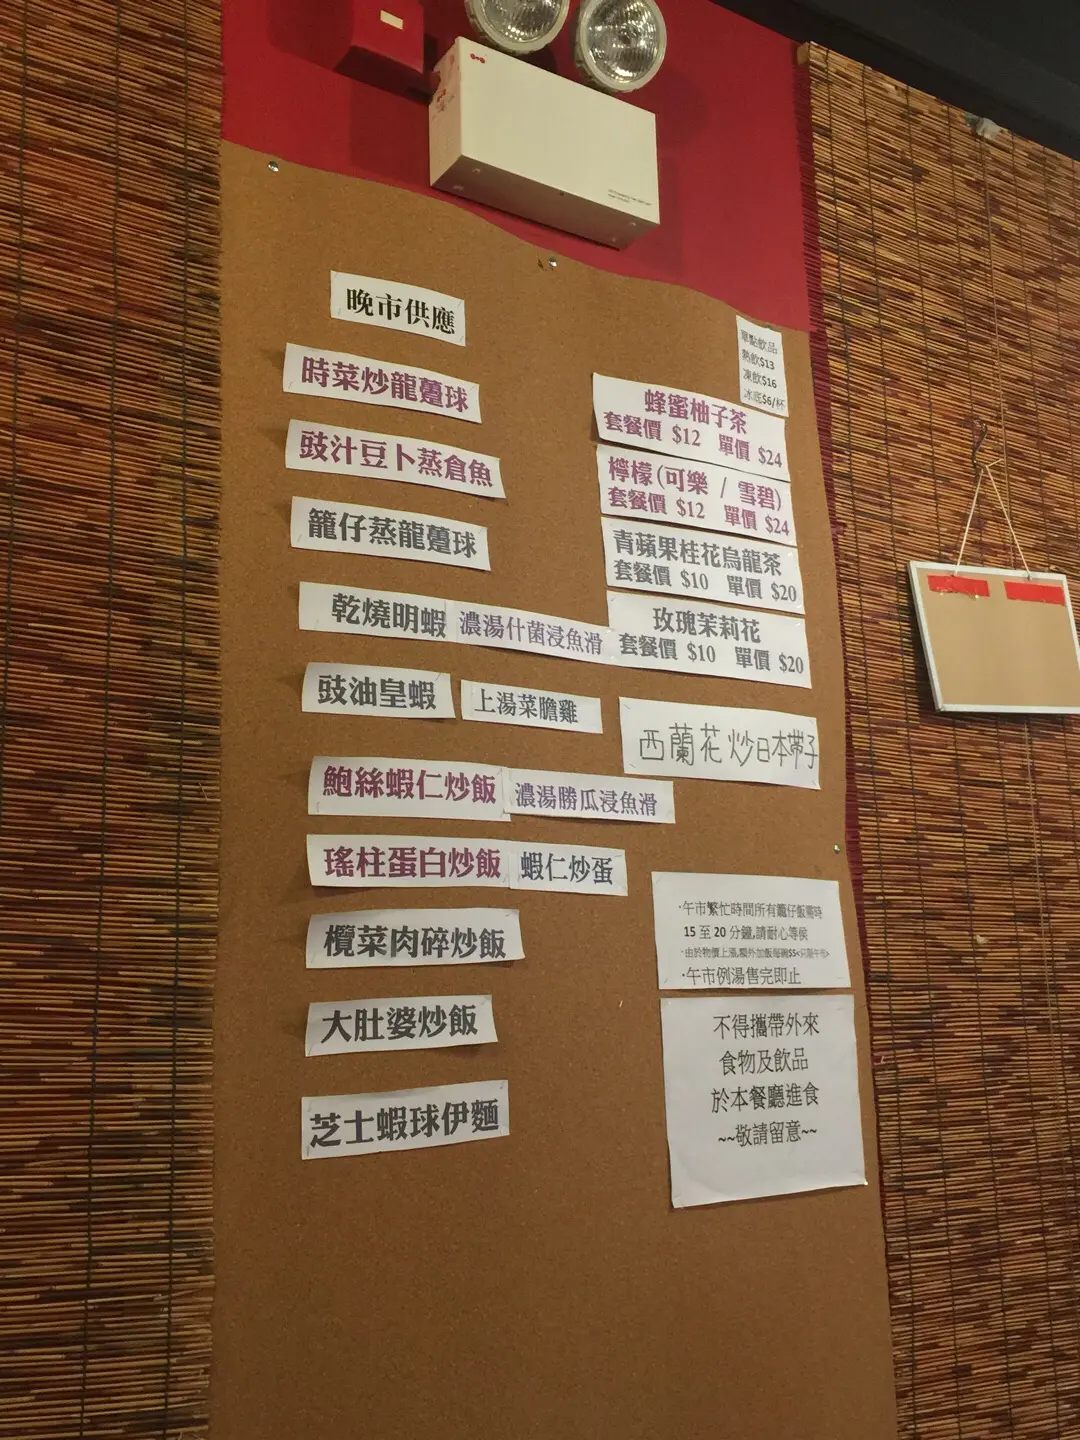 晚市供應
時菜炒龍躉球
豉汁豆卜蒸倉魚
籠仔蒸龍躉球
乾燒明蝦
濃湯什菌浸魚滑
豉油皇蝦
上湯菜膽雞
鮑絲蝦仁炒飯
濃湯勝瓜浸魚滑
瑤柱蛋白炒飯
蝦仁炒蛋
欖菜肉碎炒飯
大肚婆炒飯
芝士蝦球伊麵
單點飲品
熱飲$13
凍飲$16
冰底$6/杯
蜂蜜柚子茶
套餐價 $12 單價 $24
檸檬(可樂 / 雪碧)
套餐價 $12 單價 $24
青蘋果桂花烏龍茶
套餐價 $10 單價 $20
玫瑰茉莉花
套餐價 $10 單價 $20
西蘭花炒日本帶子
·午市繁忙時間所有籠仔飯需時
15 至 20 分鐘,請耐心等侯
·由於物價上漲,額外加飯每碗$5<只限午市>
·午市例湯售完即止
不得攜帶外來
食物及飲品
於本餐廳進食
~~敬請留意~~